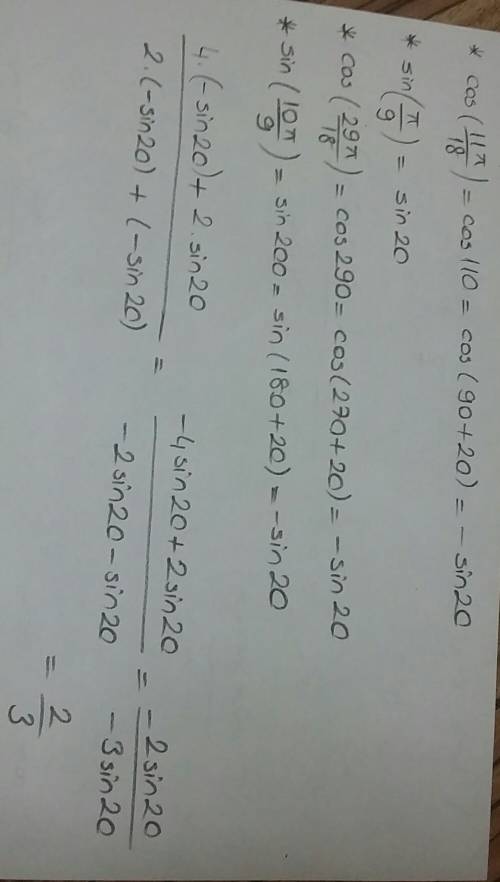 * cos(11π/18) = cos110 = cos(90+20) = -sin20
* sin(π/9) = sin20
* cos(29π/18) = cos290 = cos(270+20) = -sin20
* sin(10π/9) = sin200 = sin(180+20) = -sin20
4.(-sin20)+2.sin20 / 2.(-sin20)+(-sin20) = -4sin20+2sin20 / -2sin20-sin20 = -2sin20 / -3sin20
= 2/3